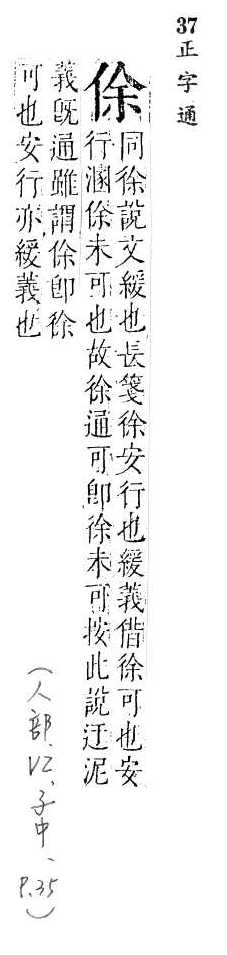 37 正字通
俆
同徐說文緩也長箋徐安行也緩義借徐可也安
行溷俆未可也故徐通可卽徐未可按此說迂泥
義旣通雖謂俆卽徐
可也安行亦緩義也
(人部、12、子中、P.35)